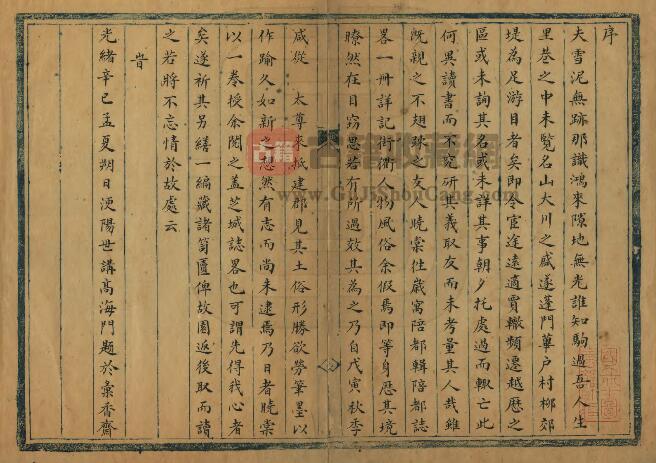 序
夫雪泥無跡那識鴻來隙地無光誰知駒過吾人生
里巷之中未覽名山大川之感遂蓬門蓽户村柳郊
堤為足游目者矣即令宦途遠適賈轍頻遷越歷之
區或未詢其名或未詳其事朝夕托處過而輙亡此
何異讀書而不究研其義取友而未考量其人哉雖
既親之不翅踈之友人曉棠往歲寓陪都輯陪都誌
畧一冊詳記街衢人物風俗余假焉即等身歷其境
瞭然在目竊思若有所過效其為之乃自戊寅秋季
咸從 太尊來牧建郡見其土俗形勝欲勞筆墨以
作踰久如新之忽然有志而尚未逮焉乃日者曉棠
以一卷授余閲之蓋芝城誌畧也可謂先得我心者
矣遂祈其另繕一編藏諸笥匱俾故園返後取而讀
之若將不忘情於故處云
旹
光緒辛巳孟夏朔日浭陽世講高海門題於彙香齋
古籍
www.GuJiShouCang.com